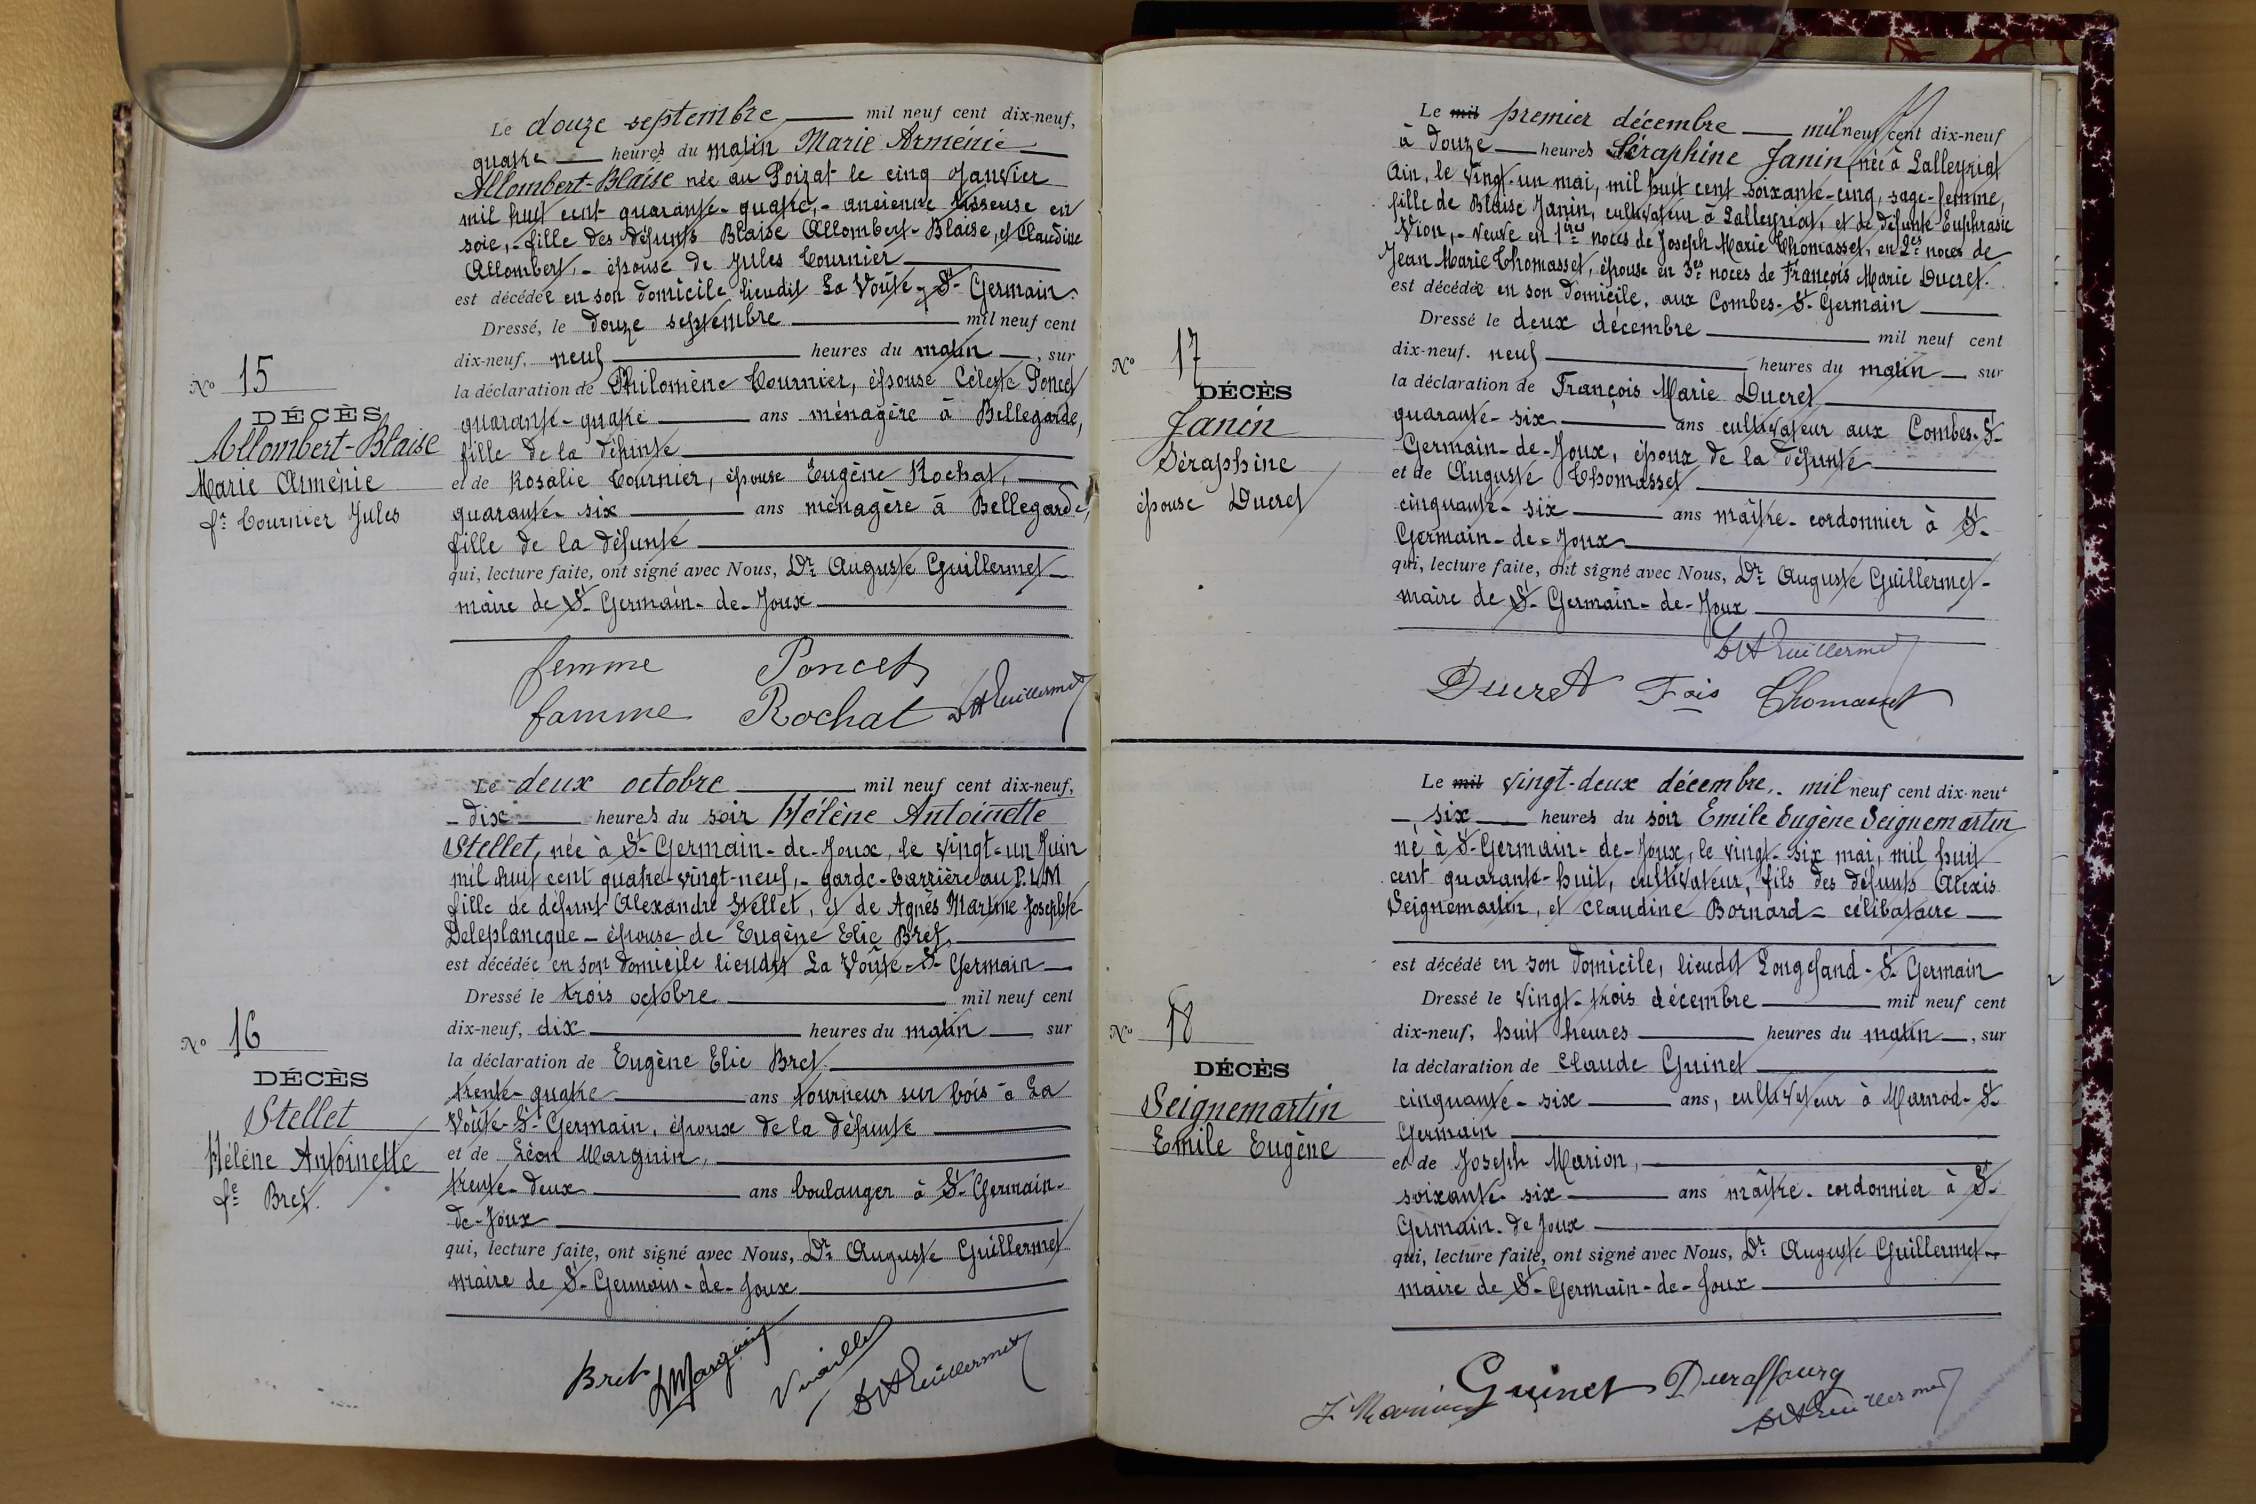 Le douze septembre mil neuf cent dix-neuf,
quatre heures du matin Marie Arménie
Allombert-Blaise née au Poizat le cinq Janvier
mil huit cent quarante-quatre, - ancienne tisseuse en
soie, - fille des défunts Blaise Allombert-Blaise, et Claudine
Allombert, - épouse de Jules Tournier
est décédée en son domicile lieudit La Voûte-St-Germain.
Dressé, le douze septembre mil neuf cent
dix-neuf, neuf heures du matin, sur
No 15
la déclaration de Philomène Tournier, épouse Céleste Poncet
DÉCÈS
quarante-quatre ans ménagère à Bellegarde,
Allombert-Blaise
fille de la défunte
Marie Arménie
et de Rosalie Tournier, épouse Eugène Rochat,
fe Tournier Jules
quarante-six ans ménagère à Bellegarde,
fille de la défunte
qui, lecture faite, ont signé avec Nous, Dr Auguste Guillermet
maire de St-Germain-de-Joux
femme Poncet
famme Rochat DrAGuillermet
Le deux octobre mil neuf cent dix-neuf,
- dix heures du soir Hélène Antoinette
Stellet, née à St-Germain-de-Joux, le vingt-un Juin
mil huit cent quatre-vingt-neuf, - garde-barrière au P.L.M
fille de défunt Alexandre Stellet, et de Agnès Martine Josèphte
Deleplancque - épouse de Eugène Elie Bret,
est décédée en son domicile lieudit La Voûte-St-Germain
Dressé le trois octobre mil neuf cent
No 16
dix-neuf, dix heures du matin, sur
la déclaration de Eugène Elie Bret
DÉCÈS
trente-quatre ans tourneur sur bois à La
Stellet
Voûte-St-Germain, époux de la défunte
Hélène Antoinette
et de Léon Marguin,
fe Bret.
trente-deux ans boulanger à St-Germain-
de-Joux
qui, lecture faite, ont signé avec Nous, Dr Auguste Guillermet
maire de St-Germain-de-Joux
Bret LMarguin DrAGuillermet
Le mil premier décembre mil neuf cent dix-neuf
à Douze heures Séraphine Janin, née à Lalleyriat
Ain, le vingt-un mai, mil huit cent soixante-cinq, sage-femme,
fille de Blaise Janin, cultivateur à Lalleyriat, et de défunte Euphrasie
Vion, - Veuve en 1res noces de Joseph Marie Thomasset, en 2es noces de
Jean Marie Thomasset, épouse en 3es noces de François Marie Ducret.
est décédée en son domicile, aux Combes-St-Germain
Dressé le deux décembre mil neuf cent
No 17
dix-neuf. neuf heures du matin sur
DÉCÈS
la déclaration de François Marie Ducret
Janin
quarante-six ans cultivateur aux Combes-St-
Séraphine
Germain-de-Joux, époux de la défunte
épouse Ducret
et de Auguste Thomasset
cinquante-six ans maître-cordonnier à St-
Germain-de-Joux
qui, lecture faite, ont signé avec Nous, Dr Auguste Guillermet-
maire de St-Germain-de-Joux
DrAGuillermet
Ducret Fois Thomasset
Le mil vingt-deux décembre. mil neuf cent dix-neuf
- six heures du soir Emile Eugène Seignemartin
né à St-Germain-de-Joux, le vingt-six mai, mil huit
cent quarante-huit, cultivateur, fils des défunts Alexis
Seignemartin, et Claudine Bornard - célibataire
est décédé en son domicile, lieudit Longefand-St-Germain
Dressé le vingt-trois décembre mil neuf cent
No 18
dix-neuf, huit heures heures du matin, sur
DÉCÈS
la déclaration de Claude Guinet
Seignemartin
cinquante-six ans, cultivateur à Marnod-St-
Emile Eugène
Germain
et de Joseph Marion,
soixante-six ans maître-cordonnier à St-
Germain-de Joux
qui, lecture faite, ont signé avec Nous, Dr Auguste Guillermet
maire de St-Germain-de-Joux
J. Marion Guinet Duraffourg
DrAGuillermet